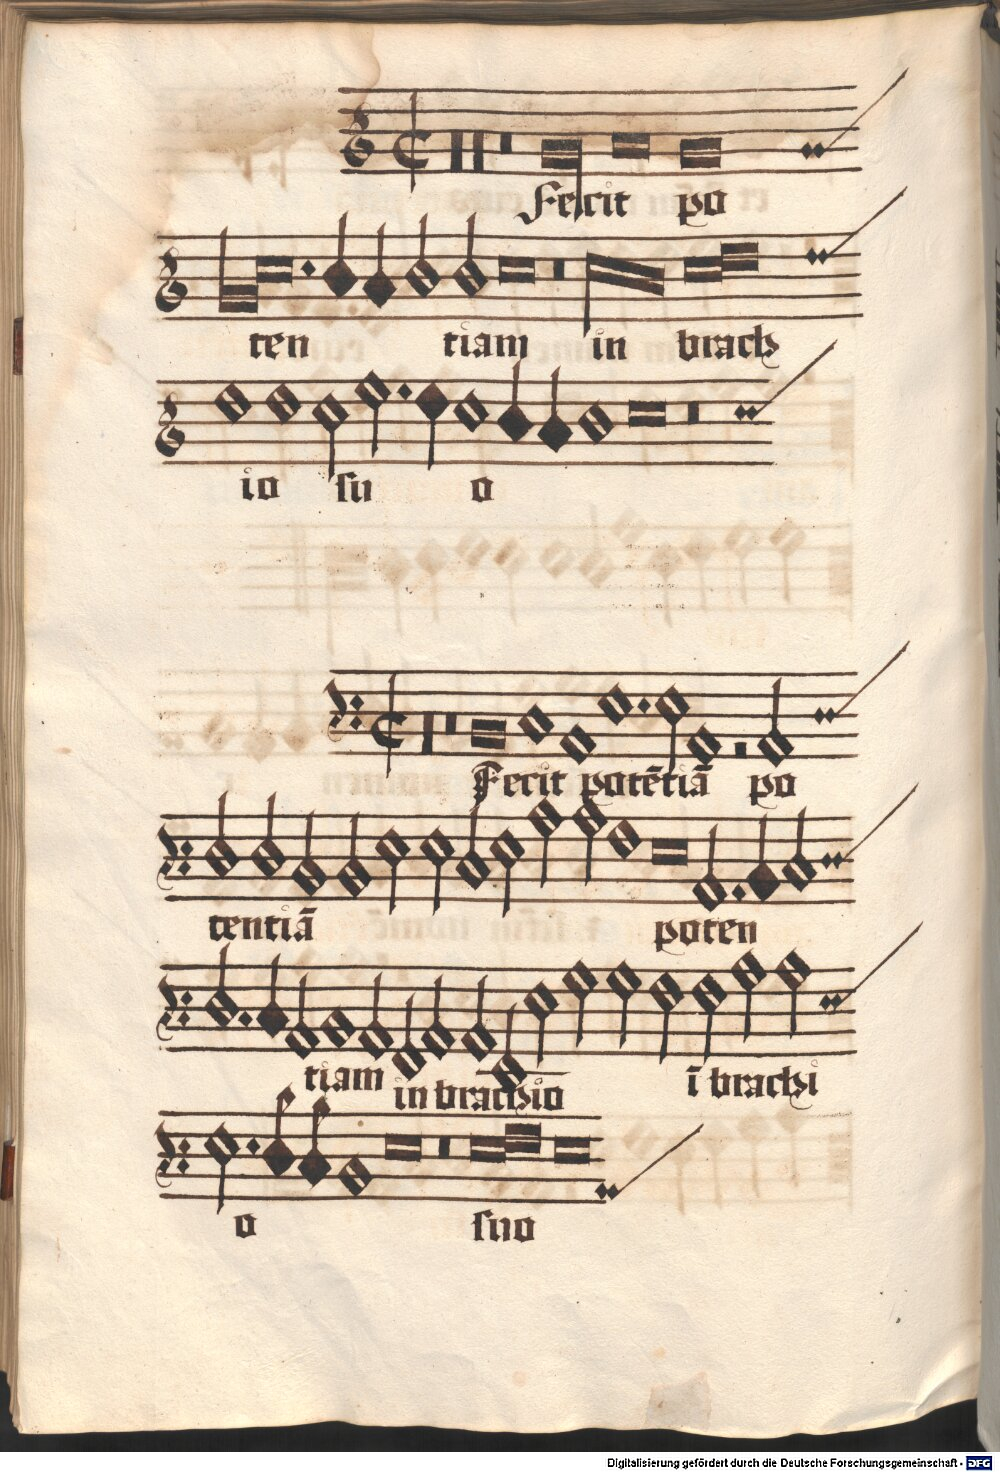 Fecit po
ten tiam in brach
io su o
Fecit potētiā po
tentiā poten
tiam in brachio ī brachi
o suo
Digitalisierung gefördert durch die Deutsche Forschungsgemeinschaft - DFG